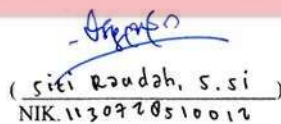 ( Siti Raudah, S.Si )
NIK. 1130728510012